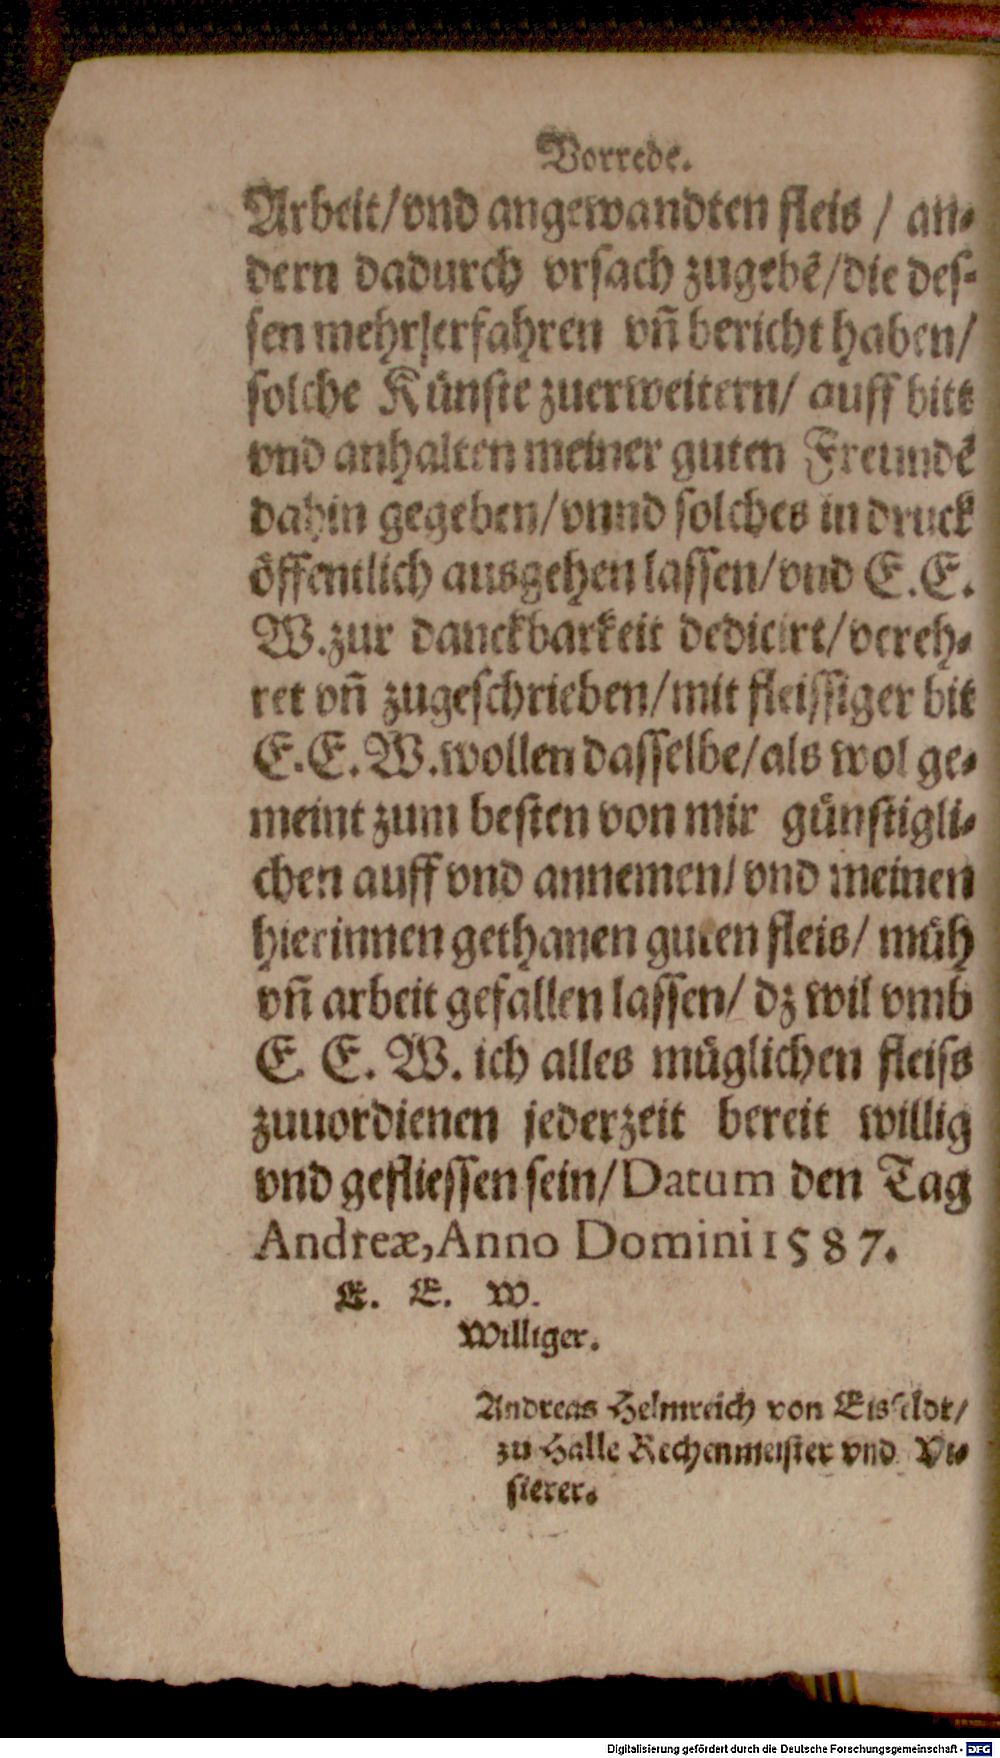 Vorrede.
Arbeit/vnd angewandten fleis / an-
dern dadurch vrsach zugebẽ/die des-
sen mehr erfahren vñ bericht haben/
solche Künste zuerweitern/ auff bitt
vnd anhalten meiner guten Freundẽ
dahin gegeben/vnnd solches in druck
öffentlich ausgehen lassen/vnd E.E.
W.zur danckbarkeit dedicirt/vereh-
ret vñ zugeschrieben/mit fleissiger bit
E.E.W.wollen dasselbe/als wol ge-
meint zum besten von mir günstigli-
chen auff vnd annemen/vnd meinen
hierinnen gethanen guten fleis/ müh
vñ arbeit gefallen lassen/ dz wil vmb
E. E. W. ich alles müglichen fleiss
zuuordienen jederzeit bereit willig
vnd gefliessen sein/Datum den Tag
Andreæ,Anno Domini 1587.
E. E. W.
Williger.
Andreas Helmreich von Eisfeldt/
zu Halle Rechenmeister vnd Vi-
sierer.
Digitalisierung gefördert durch die Deutsche Forschungsgemeinschaft - DFG